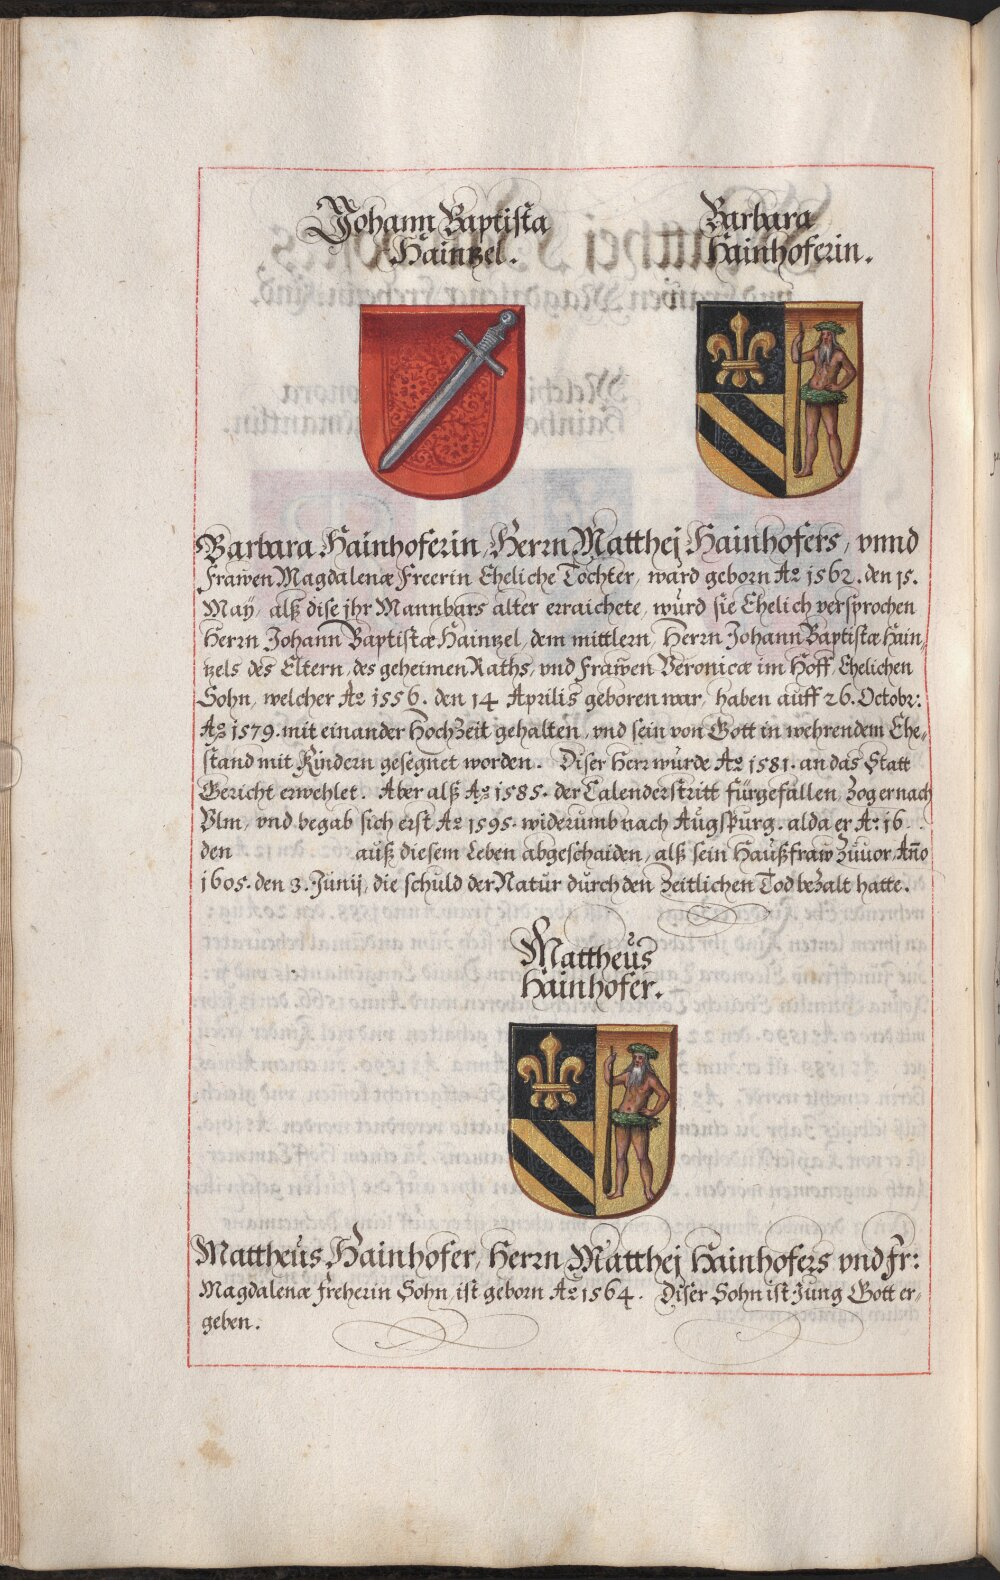 Johann Baptista
Haintzel.
Barbara
Hainhoferin.
Barbara Hainhoferin, Herrn Matthej Hainhofers, vnnd
Frawen Magdalenæ Freerin Eheliche Tochter, ward geborn Aº 1562. den 15.
May, alß dise jhr Mannbars alter erraichete, würd sie Ehelich versprochen
Herrn Johann Baptistæ Haintzel, dem mittlern, Herrn Johann Baptistæ Hain,
tzels des Eltern, des geheimen Raths, vnd Frawen Veronicæ im Hoff, Ehelichen
Sohn, welcher Aº 1556. den 14 Aprilis geboren war, haben auff 26. Octobr:
Aº 1579. mit einander Hochzeit gehalten, vnd sein von Gott in wehrendem Ehe,
stand mit Kindern gesegnet worden. Diser Herr würde Aº 1581. an das Statt
Gericht erwehlet. Aber alß Aº 1585. der Calenderstritt fürgefallen, zog er nach
Vlm, vnd begab sich erst Aº 1595. widerumb nach Augspurg. alda er Aº: 16
den auß diesem Leben abgeschaiden, alß sein Haußfraw zuuor, Año
1605. den 3. Junij, die schuld der Natur durch den Zeitlichen Tod bezalt hatte.
Mattheus
Hainhofer.
Mattheus Hainhofer, Herrn Matthej Hainhofers vnd Fr:
Magdalenæ freherin Sohn, ist geborn Aº 1564. Diser Sohn ist Jung Gott er,
geben.